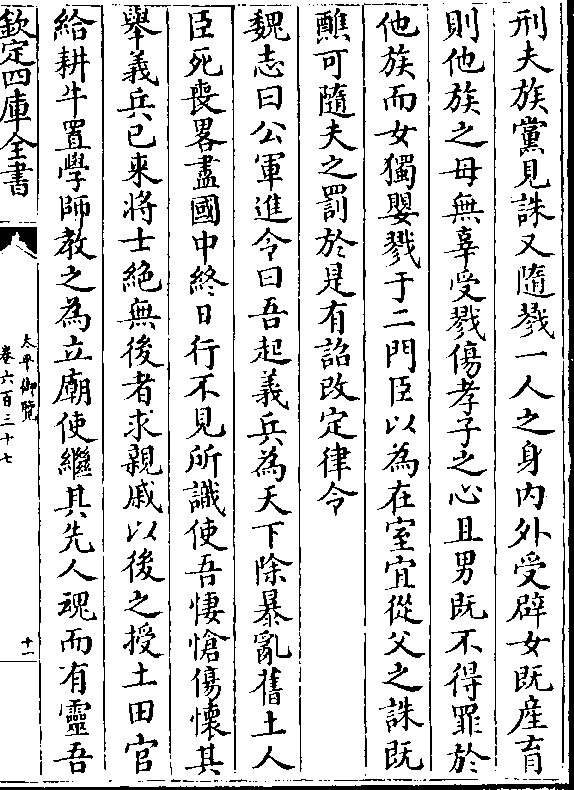 刑夫族黨見誅又隨戮一人之身内外受辟女既産育
則他族之母無辜受戮傷孝子之心且男既不得罪於
他族而女獨嬰戮于二門臣以為在室宜從父之誅既
醮可隨夫之罰於是有詔改定律令
魏志曰公軍進令曰吾起義兵為天下除暴亂舊土人
臣死喪畧盡國中終日行不見所識使吾悽愴傷懷其
舉義兵已來將士絶無後者求親戚以後之授土田官
給耕牛置學師教之為立廟使繼其先人魂而有靈吾
欽定四庫全書
太平御覽
卷六百三十七
十一